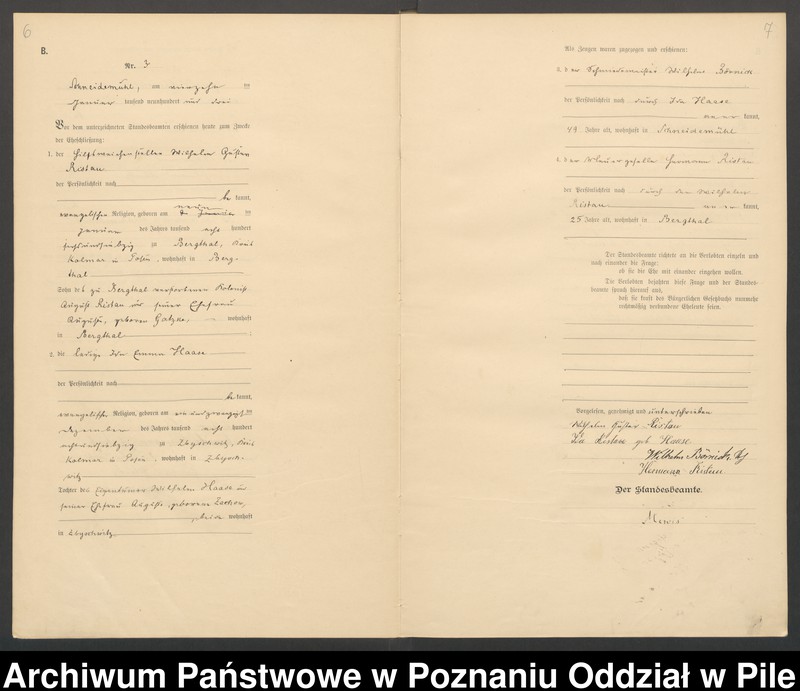 6
B.
Nr. 3
Schneidemühl, am vierzehn ten
Januar tausend neunhundert und drei
Vor dem unterzeichneten Standesbeamten erschienen heute zum Zweck
der Eheschließung:
1. der Hilfsweichensteller Wilhelm Gustav
Ristau
der Persönlichkeit nach
be kannt,
evangelischer Religion, geboren am neun ten
Januar des Jahres tausend acht hundert
sechsundsiebzig zu Bergthal, Kreis
Kolmar in Posen, wohnhaft in Berg-
thal
Sohn des zu Bergthal verstorbenen Kolonist
August Ristau und seiner Ehefrau
Auguste, geborenen Gatzke, wohnhaft
in Bergthal
2. die ledige Ida Emma Haase
der Persönlichkeit nach
be kannt,
evangelischer Religion, geboren am einundzwanzigsten
Dezember des Jahres tausend acht hundert
zu Zbyschewitz, Kreis
Kolmar in Posen, wohnhaft in Zbysche-
witz
Tochter des Eigentümer Wilhelm Haase und
seiner Ehefrau Auguste, geborenen
beide wohnhaft
in Zbyschewitz
7
Als Zeugen waren zugezogen und erschienen:
3. der Schmiedemeister Wilhelm Börnick
der Persönlichkeit nach durch Ida Haase
aner kannt,
49 Jahre alt, wohnhaft in Schneidemühl
4. der Maurergeselle Hermann Ristau
der Persönlichkeit nach durch den Wilhelm
Ristau aner kannt,
25 Jahre alt, wohnhaft in Bergthal
Der Standesbeamte richtete an die Verlobten einzeln und
nach einander die Frage:
ob sie die Ehe mit einander eingehen wollen.
Die Verlobten bejahten diese Frage und der Standes-
beamte sprach hierauf aus,
daß sie kraft des Bürgerlichen Gesetzbuchs nunmehr
rechtmäßig verbundene Eheleute seien.
Vorgelesen, genehmigt und unterschrieben
Wilhelm Gustav Ristau
Ida Ristau geb. Haase
Wilhelm Börnick
Hermann Ristau
Der Standesbeamte.
Archiwum Państwowe w Poznaniu Oddział w Pile